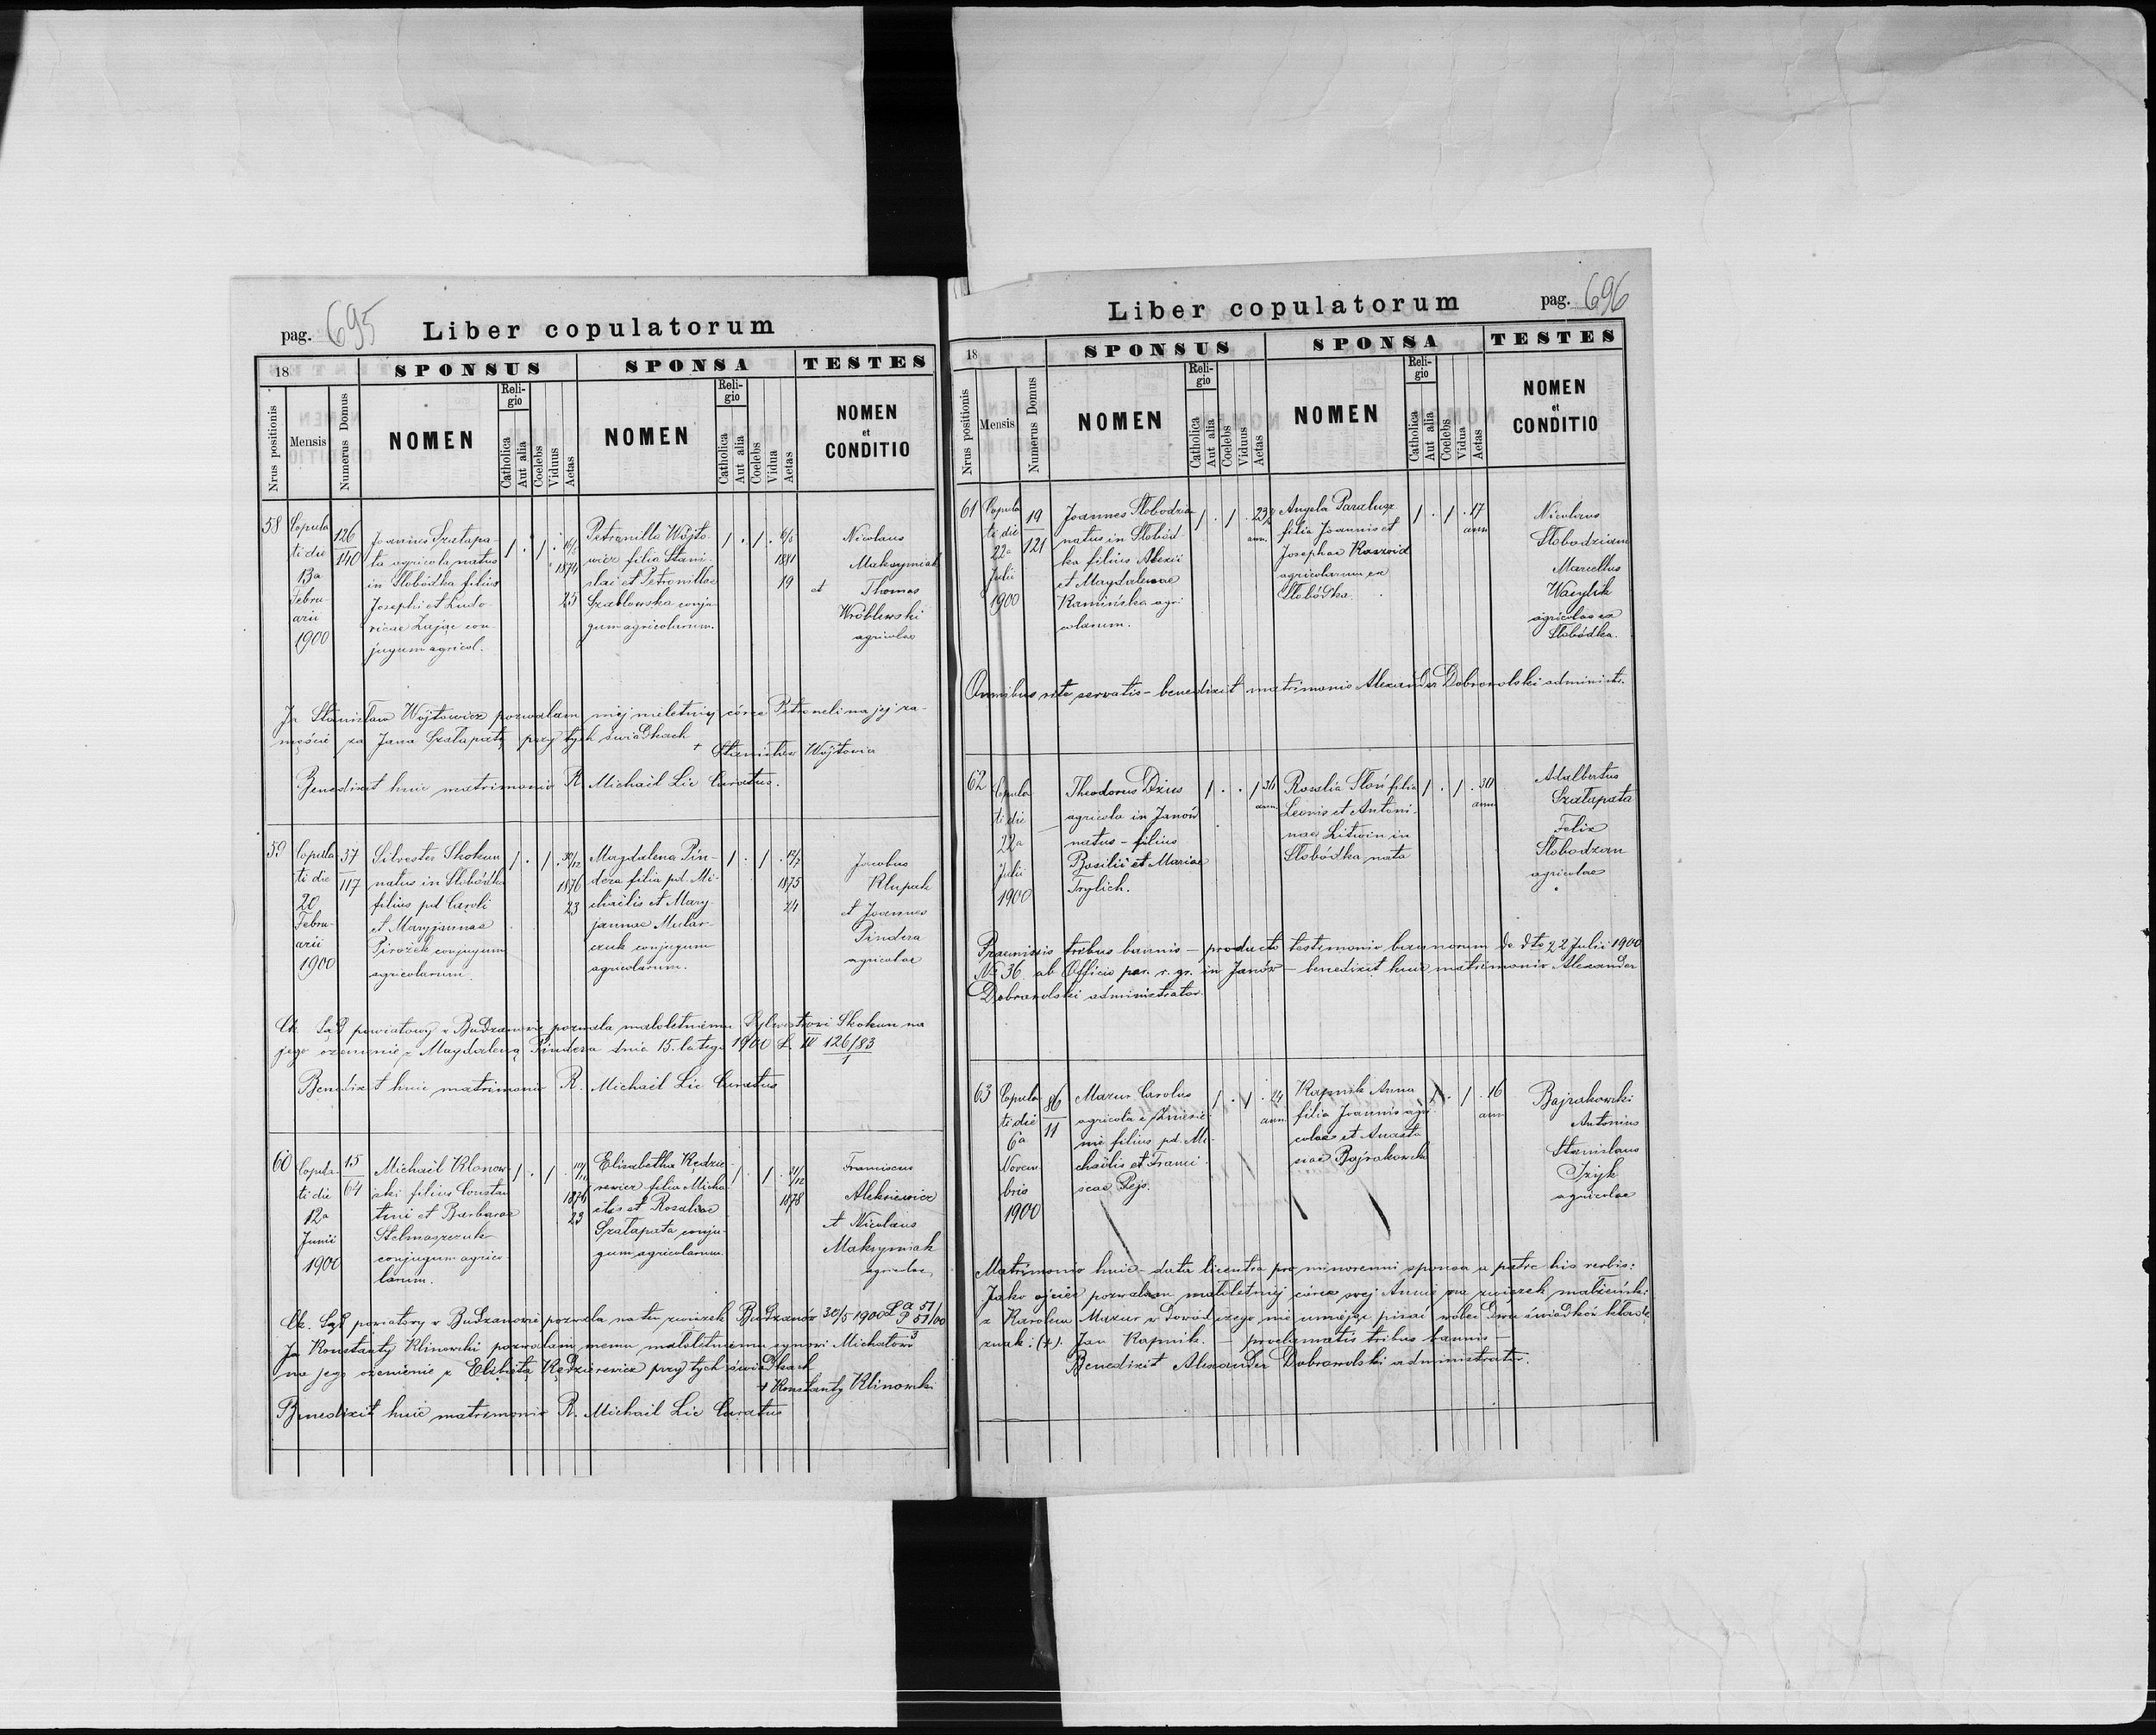 pag. 695 Liber copulatorum
18 SPONSUS SPONSA TESTES
Nrus positionis Mensis Numerus Domus NOMEN Religio Catholica Aut alia Coelebs Viduus Aetas NOMEN Religio Catholica Aut alia Coelebs Vidua Aetas NOMEN et CONDITIO
58
Copula
ti die
13a
Febru-
arii
1900
126
140
Joannes Szałapa-
ta agricola natus
in Slobódka filius
Josephi et Ludo-
vicae Zając con-
jugum agricol.
1874
25
Petronilla Wójto-
wicz filia Stani-
slai et Petronillae
Szablowska conju-
gum agricolarum.
6/5
1881
19
Nicolaus
Maksymiak
et Thomas
Wróblewski
agricolae
Ja Stanisław Wójtowicz pozwalam mej niletniej córce Petroneli na jej za-
męście za Jana Szałapatę przy tych świadkach
+ Stanisław Wójtowicz
Benedixit huic matrimonio R. Michaël Lic Curatus.
59
Copula
ti die
20
Febru-
arii
1900
37
117
Silvester Skokun
natus in Slobódka
filius pd Caroli
et Maryjannae
Pirożek conjugum
agricolarum.
30/12
1876
23
Magdalena Pin-
dera filia pd. Mi-
chaëlis et Mary-
jannae Mular-
czuk conjugum
agricolarum.
12/7
1875
24
Jacobus
Klupak
et Joannes
Pindera
agricolae
Ck. Sąd powiatowy w Budzanowie pozwala małoletniemu Sylwestrowi Skokun na
jego ożenienie z Magdaleną Pindera dnia 15. lutego 1900 L. IV 126/83
1
Benedixit huic matrimonio R. Michaël Lic Curatus
60
Copula-
ti die
12a
Junii
1900
15
64
Michaël Klonow-
ski filius Constan
tini et Barbarae
Stelmaszczuk
conjugum agrico-
larum.
1876
23
Elisabetha Kędzie-
rewicz filia Micha-
ëlis et Rosaliae
Szałapata conju-
gum agricolarum
21/12
1878
Franciscus
Aleksiewicz
et Nicolaus
Maksymiak
agricolae
Ck. Sąd powiatowy w Budzanowie pozwala na ten związek Budzanów 30/5 1900 L a 51
P 51/00
3
Ja Konstanty Klinowski pozwalam memu małoletniemu synowi Michałowi
na jego ożenienie z Elżbietą Kędzierewicz przy tych świadkach
+ Konstanty Klinowski
Benedixit huic matrimonio R. Michaël Lic Curatus
Liber copulatorum pag. 696
18 SPONSUS SPONSA TESTES
Nrus positionis Mensis Numerus Domus NOMEN Religio Catholica Aut alia Coelebs Viduus Aetas NOMEN Religio Catholica Aut alia Coelebs Vidua Aetas NOMEN et CONDITIO
61
Copula
ti die
22a
Julii
1900
19
121
Joannes Slobodzian
natus in Slobód
ka filius Alexii
et Magdalenae
Kamińska agri
colarum.
ann.
Angela Paralusz
filia Joannis et
Josephae Kaszoid
agricolarum ex
Slobódka.
17
ann
Nicolaus
Slobodzian
Marcellus
Wasylik
agricolae ex
Slobódka.
Omnibus rite servatis - benedixit matrimonio Alexander Dobrowolski administr.
62
Copula
ti die
22a
Julii
1900
Theodorus Dzius
agricola in Janów
natus - filius
Basilii et Mariae
Trylich.
36
ann
Rosalia Słoń filia
Leonis et Antoni-
nae Litwin in
Slobódka nata
30
ann
Adalbertus
Szałapata
Felix
Slobodzian
agricolae
Praemissis tribus bannis - producto testimonio bannorum de dto 22 Julii 1900
No 36 ab Officio par. r. gr. in Janów - benedixit huic matrimonio Alexander
Dobrowolski administrator.
63
Copula
ti die
6a
Novem
bris
1900
86
11
Mazur Carolus
agricola e Zniesie
nie filius pd. Mi-
chaëlis et Franci
scae Pejo.
24
ann.
Kapnik Anna
filia Joannis agri-
colae et Anasta
siae Bajrakowska
16
ann
Bajrakowski
Antonius
Stanislaus
Iżyk
agricolae
Matrimonio huic - data licentia pro minorenni sponsa a patre his verbis:
Jako ojciec pozwalam małoletniej córce swej Annie na związek małżeński
z Karolem Mazur w dowód czego nie umiejąc pisać wobec dwu świadków kładę
znak: (+). Jan Kapnik. - proclamatis tribus bannis -
Benedixit Alexander Dobrowolski administrator.